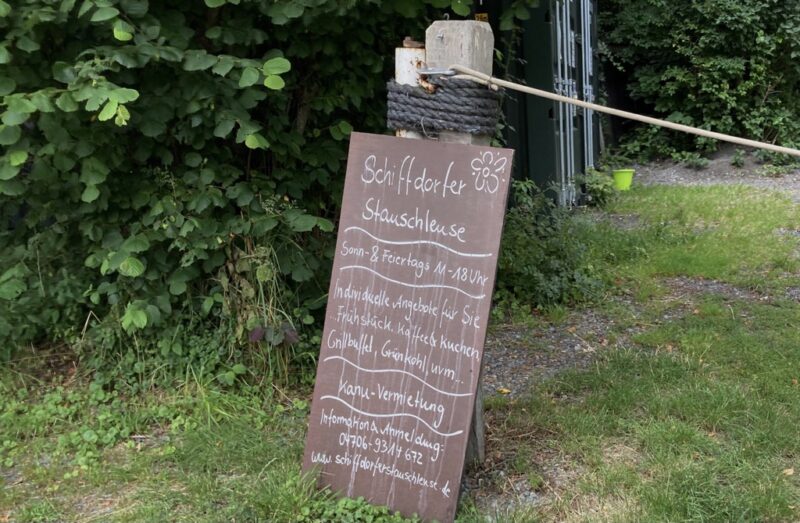 Schiffdorfer
Stauschleuse
Sonn- & Feiertags 11-18 Uhr
Individuelle Angebote für Sie
...Frühstück, Kaffee & Kuchen,
Grillbuffet, Grünkohl, uvm...
Kanu-Vermietung
Information & Anmeldung:
04706-9314672
www.schiffdorferstauschleuse.de